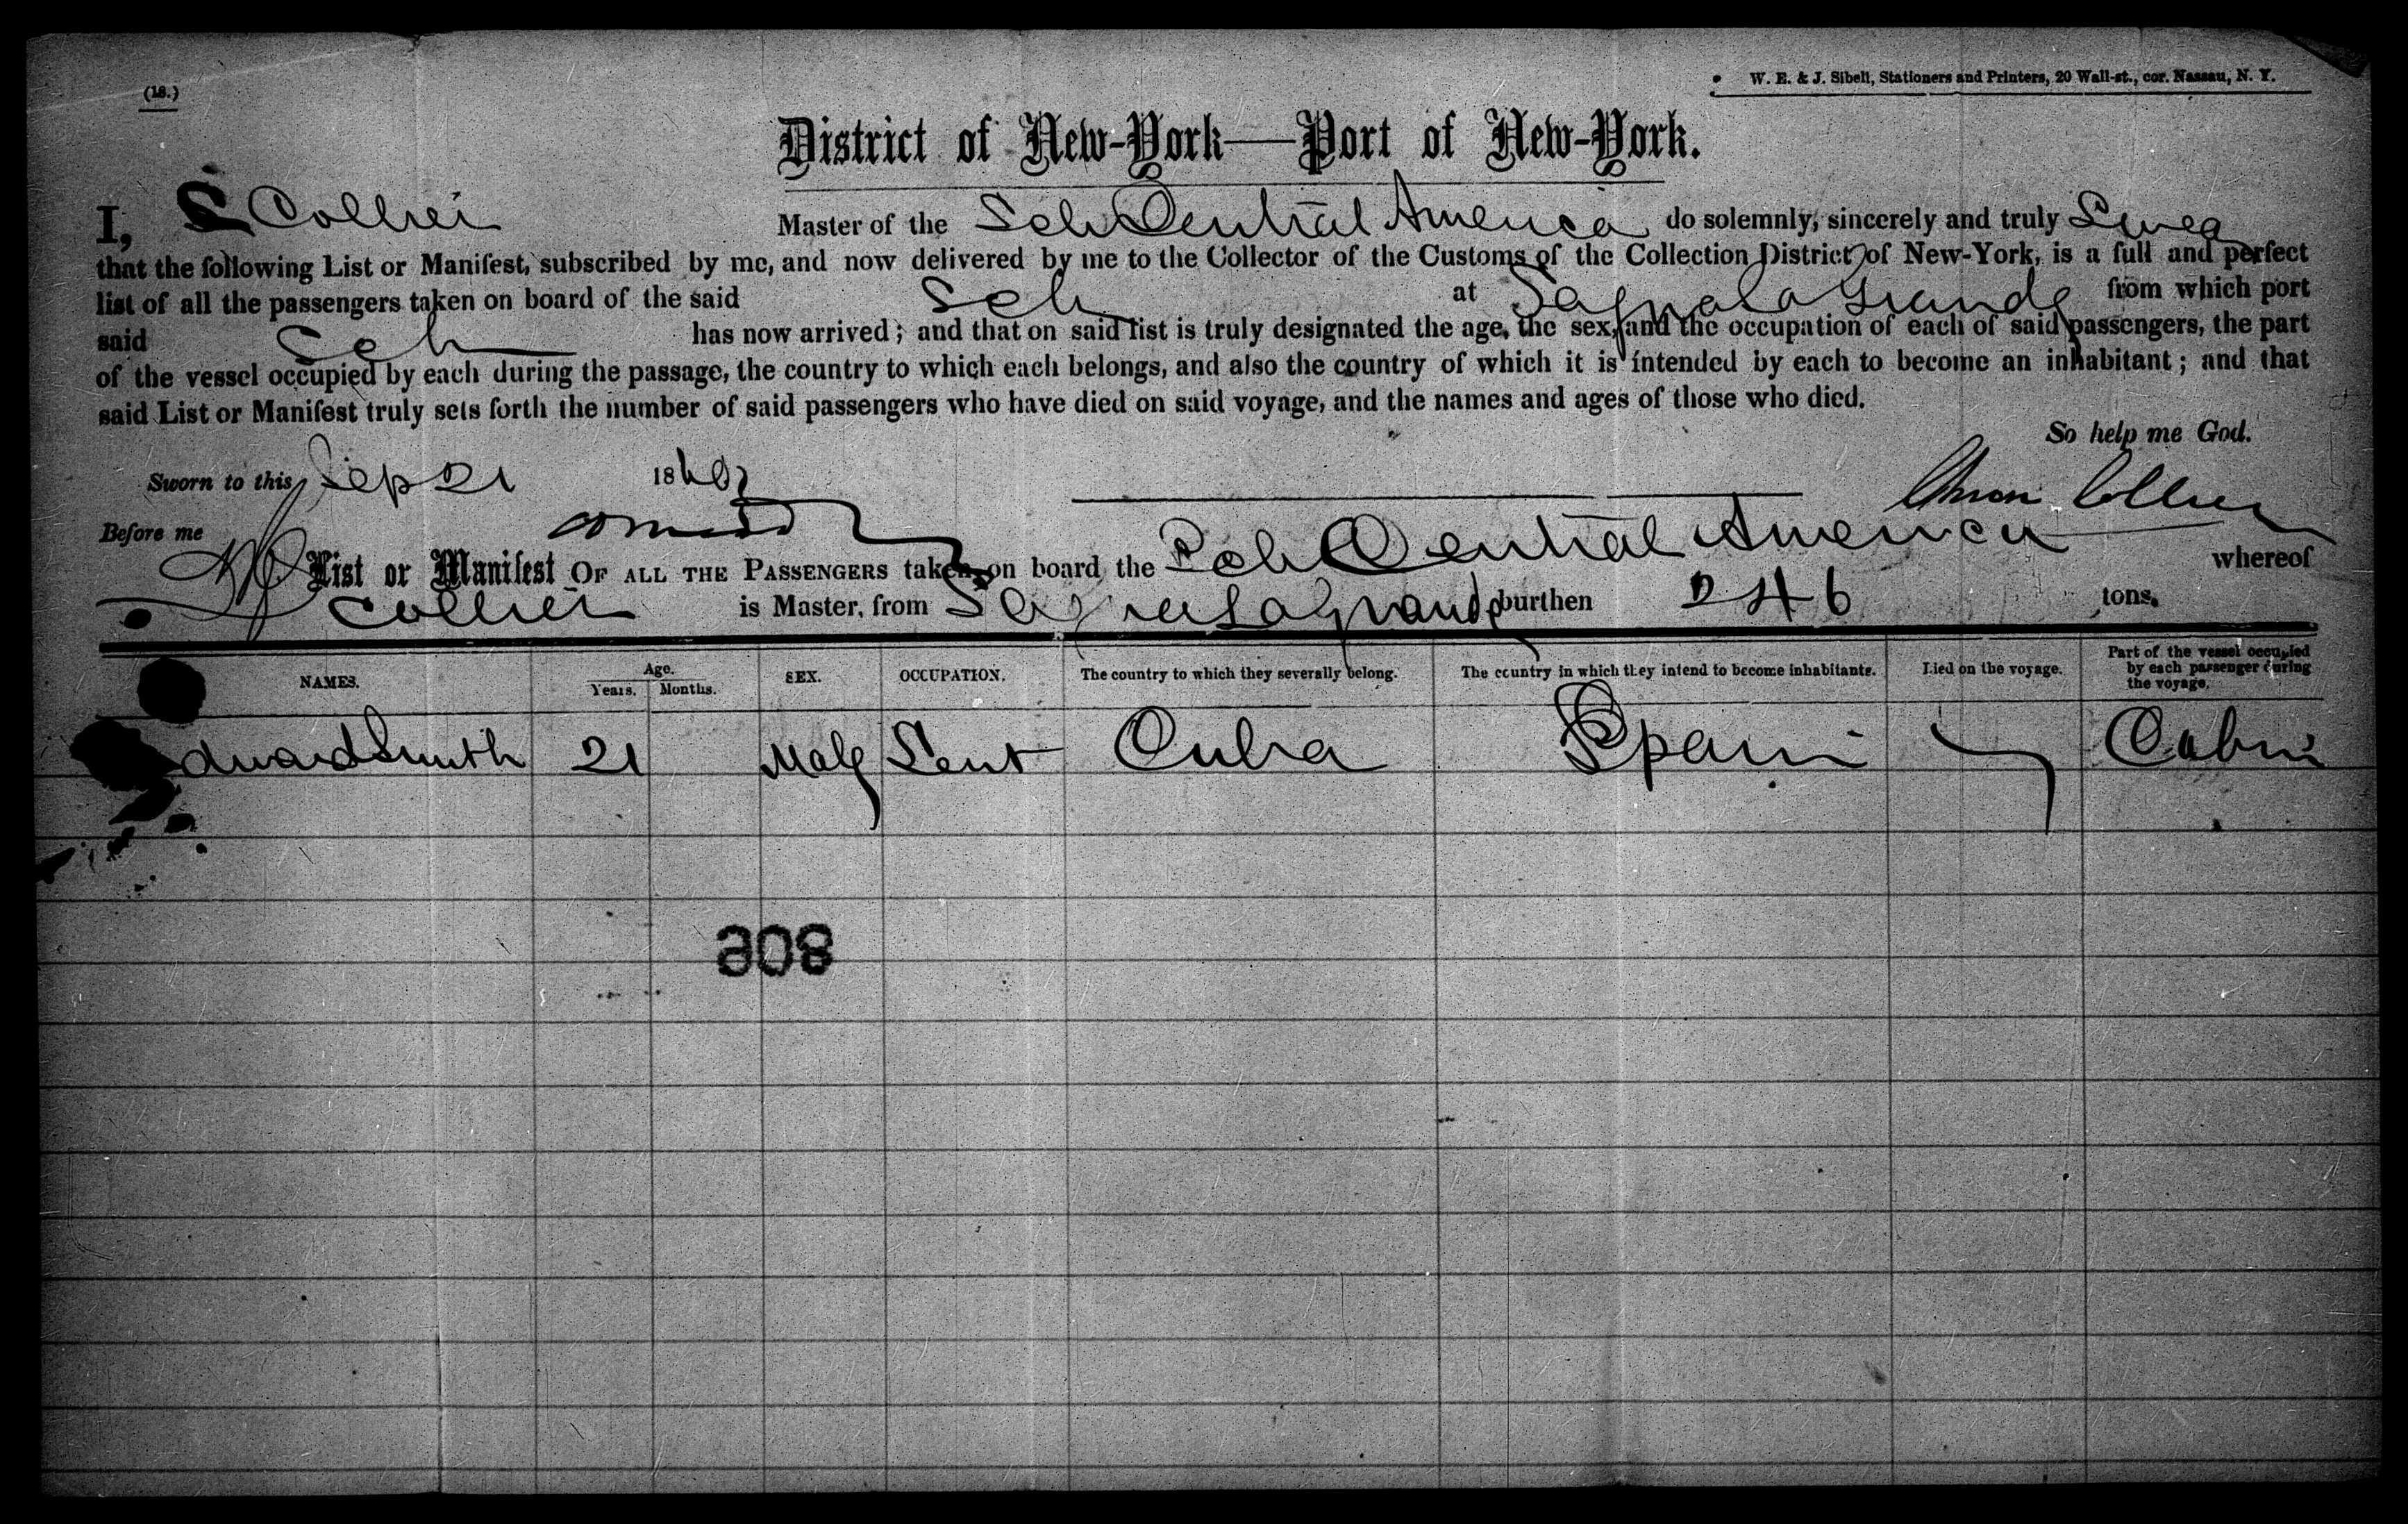 (18.)
W. E. & J. Sibell, Stationers and Printers, 20 Wall-st., cor. Nassau, N. Y.
District of New-York—Port of New-York.
I, S Collier Master of the Sch Central America do solemnly, sincerely and truly Swear
that the following List or Manifest, subscribed by me, and now delivered by me to the Collector of the Customs of the Collection District of New-York, is a full and perfect
list of all the passengers taken on board of the said Sch at Sagua la Grande from which port
said Sch has now arrived; and that on said list is truly designated the age, the sex, and the occupation of each of said passengers, the part
of the vessel occupied by each during the passage, the country to which each belongs, and also the country of which it is intended by each to become an inhabitant; and that
said List or Manifest truly sets forth the number of said passengers who have died on said voyage, and the names and ages of those who died.
So help me God.
Sworn to this Sep 21 186
Collier
Before me
List or Manifest OF ALL THE PASSENGERS taken on board the Sch Central America whereof
Collier is Master, from Sagua La Grande burthen 246 tons.
NAMES. Age. Years. Months. SEX. OCCUPATION. The country to which they severally belong. The country in which they intend to become inhabitants. Died on the voyage. Part of the vessel occupied by each passenger during the voyage.
Edward Smith 21 Male Gent Cuba Spain Cabin
806